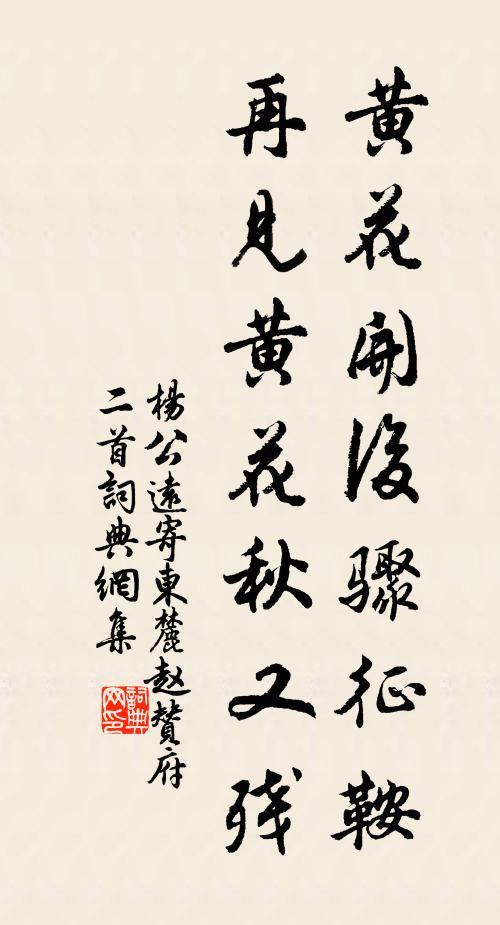 黃花開後驟征鞍
再見黃花秋又殘
楊公遠寄東麓趙贊府
二首詞典網集
詞典
网印